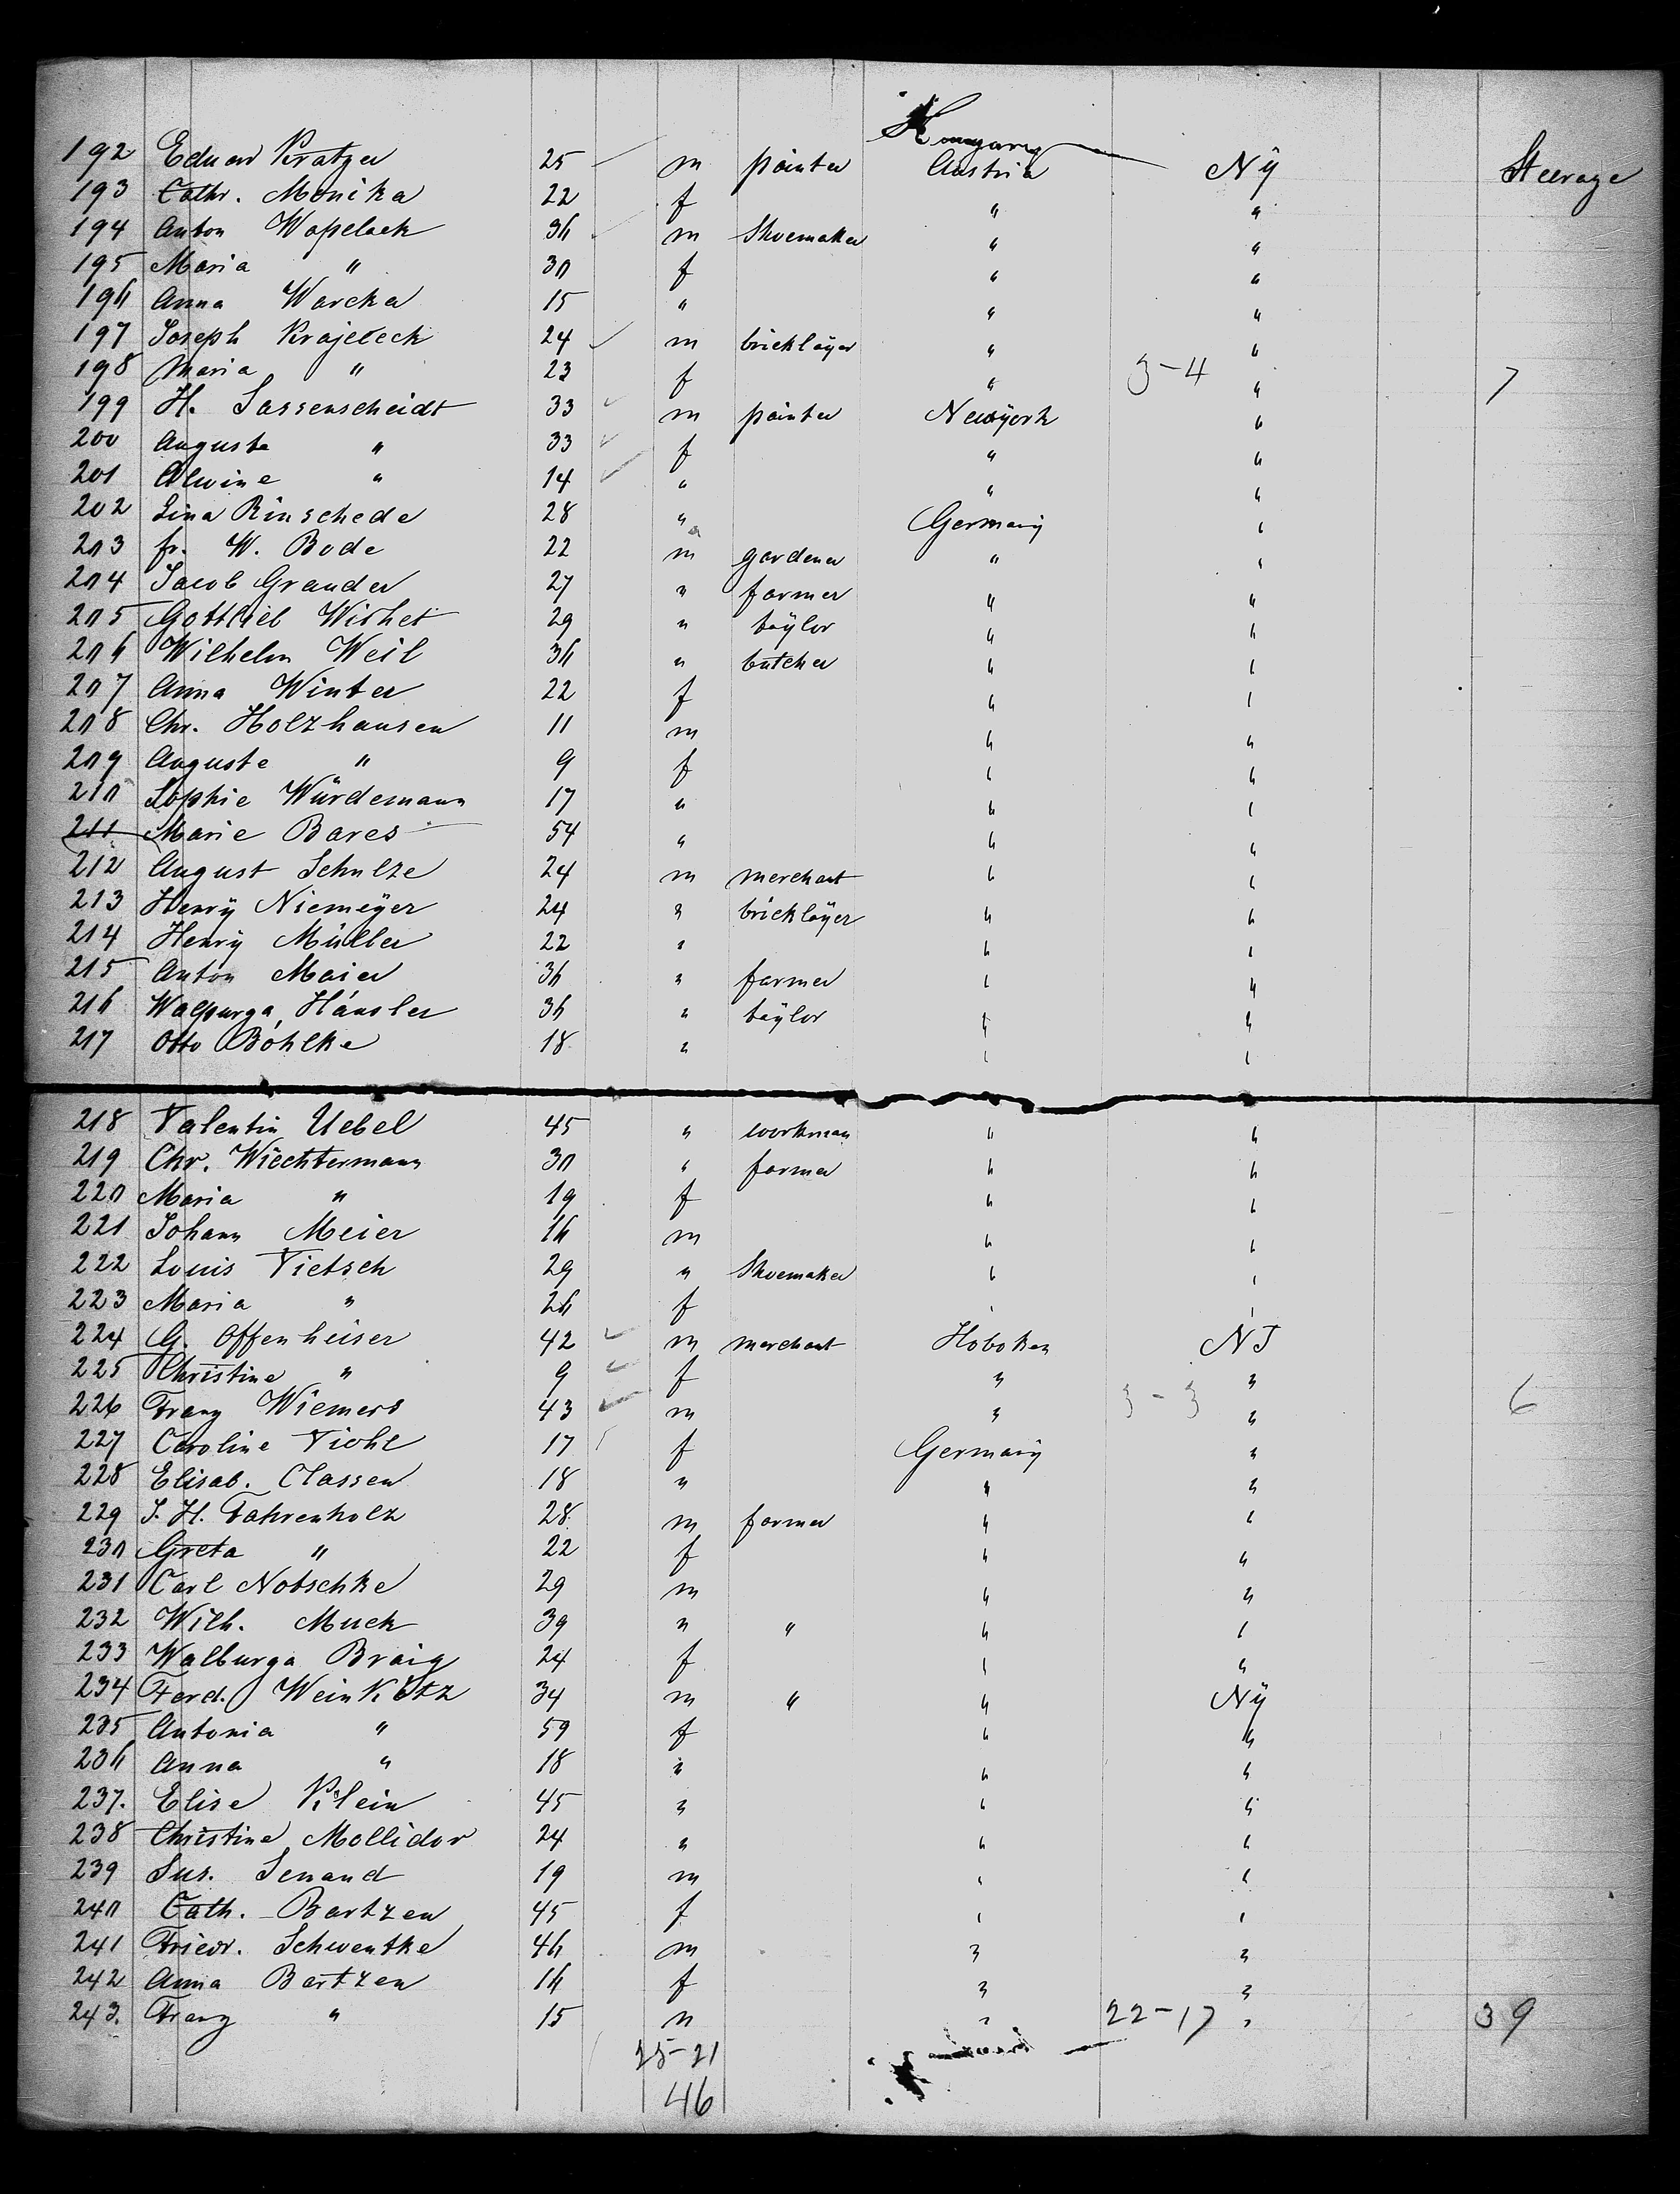 Hungary
192 Eduard Kratzer 25 m painter Austria NY Steerage
193 Cathr. Monika 22 f " "
194 Anton Wopelack 36 m Shoemaker " "
195 Maria " 30 f " "
196 Anna Warcka 15 " " "
197 Joseph Krajeleck 24 m bricklayer " "
198 Maria " 23 f " 3-4 " 7
199 H. Sassenscheidt 33 m painter Newyork "
200 Auguste " 33 f " "
201 Alwine " 14 " " "
202 Lina Rinschede 28 " Germany "
203 fr. W. Bode 22 m gardener " "
204 Jacob Grander 27 " farmer " "
205 Gottlieb Wishet 29 " taylor " "
206 Wilhelm Weil 36 " butcher " "
207 Anna Winter 22 f " "
208 Chr. Holzhausen 11 m " "
209 Auguste " 9 f " "
210 Sophie Würdemann 17 " " "
211 Marie Bares 54 " " "
212 August Schulze 24 m merchant " "
213 Henry Niemeyer 24 " bricklayer " "
214 Henry Müller 22 " " "
215 Anton Maier 36 " farmer " "
216 Walpurga Häusler 36 " taylor " "
217 Otto Böhlke 18 " " "
218 Valentin Uebel 45 " workman " "
219 Chr. Wiechtermann 30 " farmer " "
220 Maria " 19 f " "
221 Johann Meier 16 m " "
222 Louis Vietsch 29 " Shoemaker " "
223 Maria " 26 f " "
224 G. Offenheiser 42 m merchant Hoboken NJ
225 Christine " 9 f " "
226 Franz Wiemers 43 m " 3-3 " 6
227 Caroline Viohl 17 f Germany "
228 Elisab. Classen 18 " " "
229 J. H. Fahrenholz 28 m farmer " "
230 Greta " 22 f " "
231 Carl Notschke 29 m " "
232 Wilh. Muck 39 " " " "
233 Walburga Braig 24 f " "
234 Ferd. Weinkötz 34 m " " NY
235 Antonia " 59 f " "
236 Anna " 18 " " "
237. Elise Klein 45 " " "
238 Christine Mollidor 24 " " "
239 Sus. Senand 19 m " "
240 Cath. Bartzen 45 f " "
241 Friedr. Schwentke 46 m " "
242 Anna Bartzen 16 f " "
243. Franz " 15 m " 22-17 " 39
25-21
46